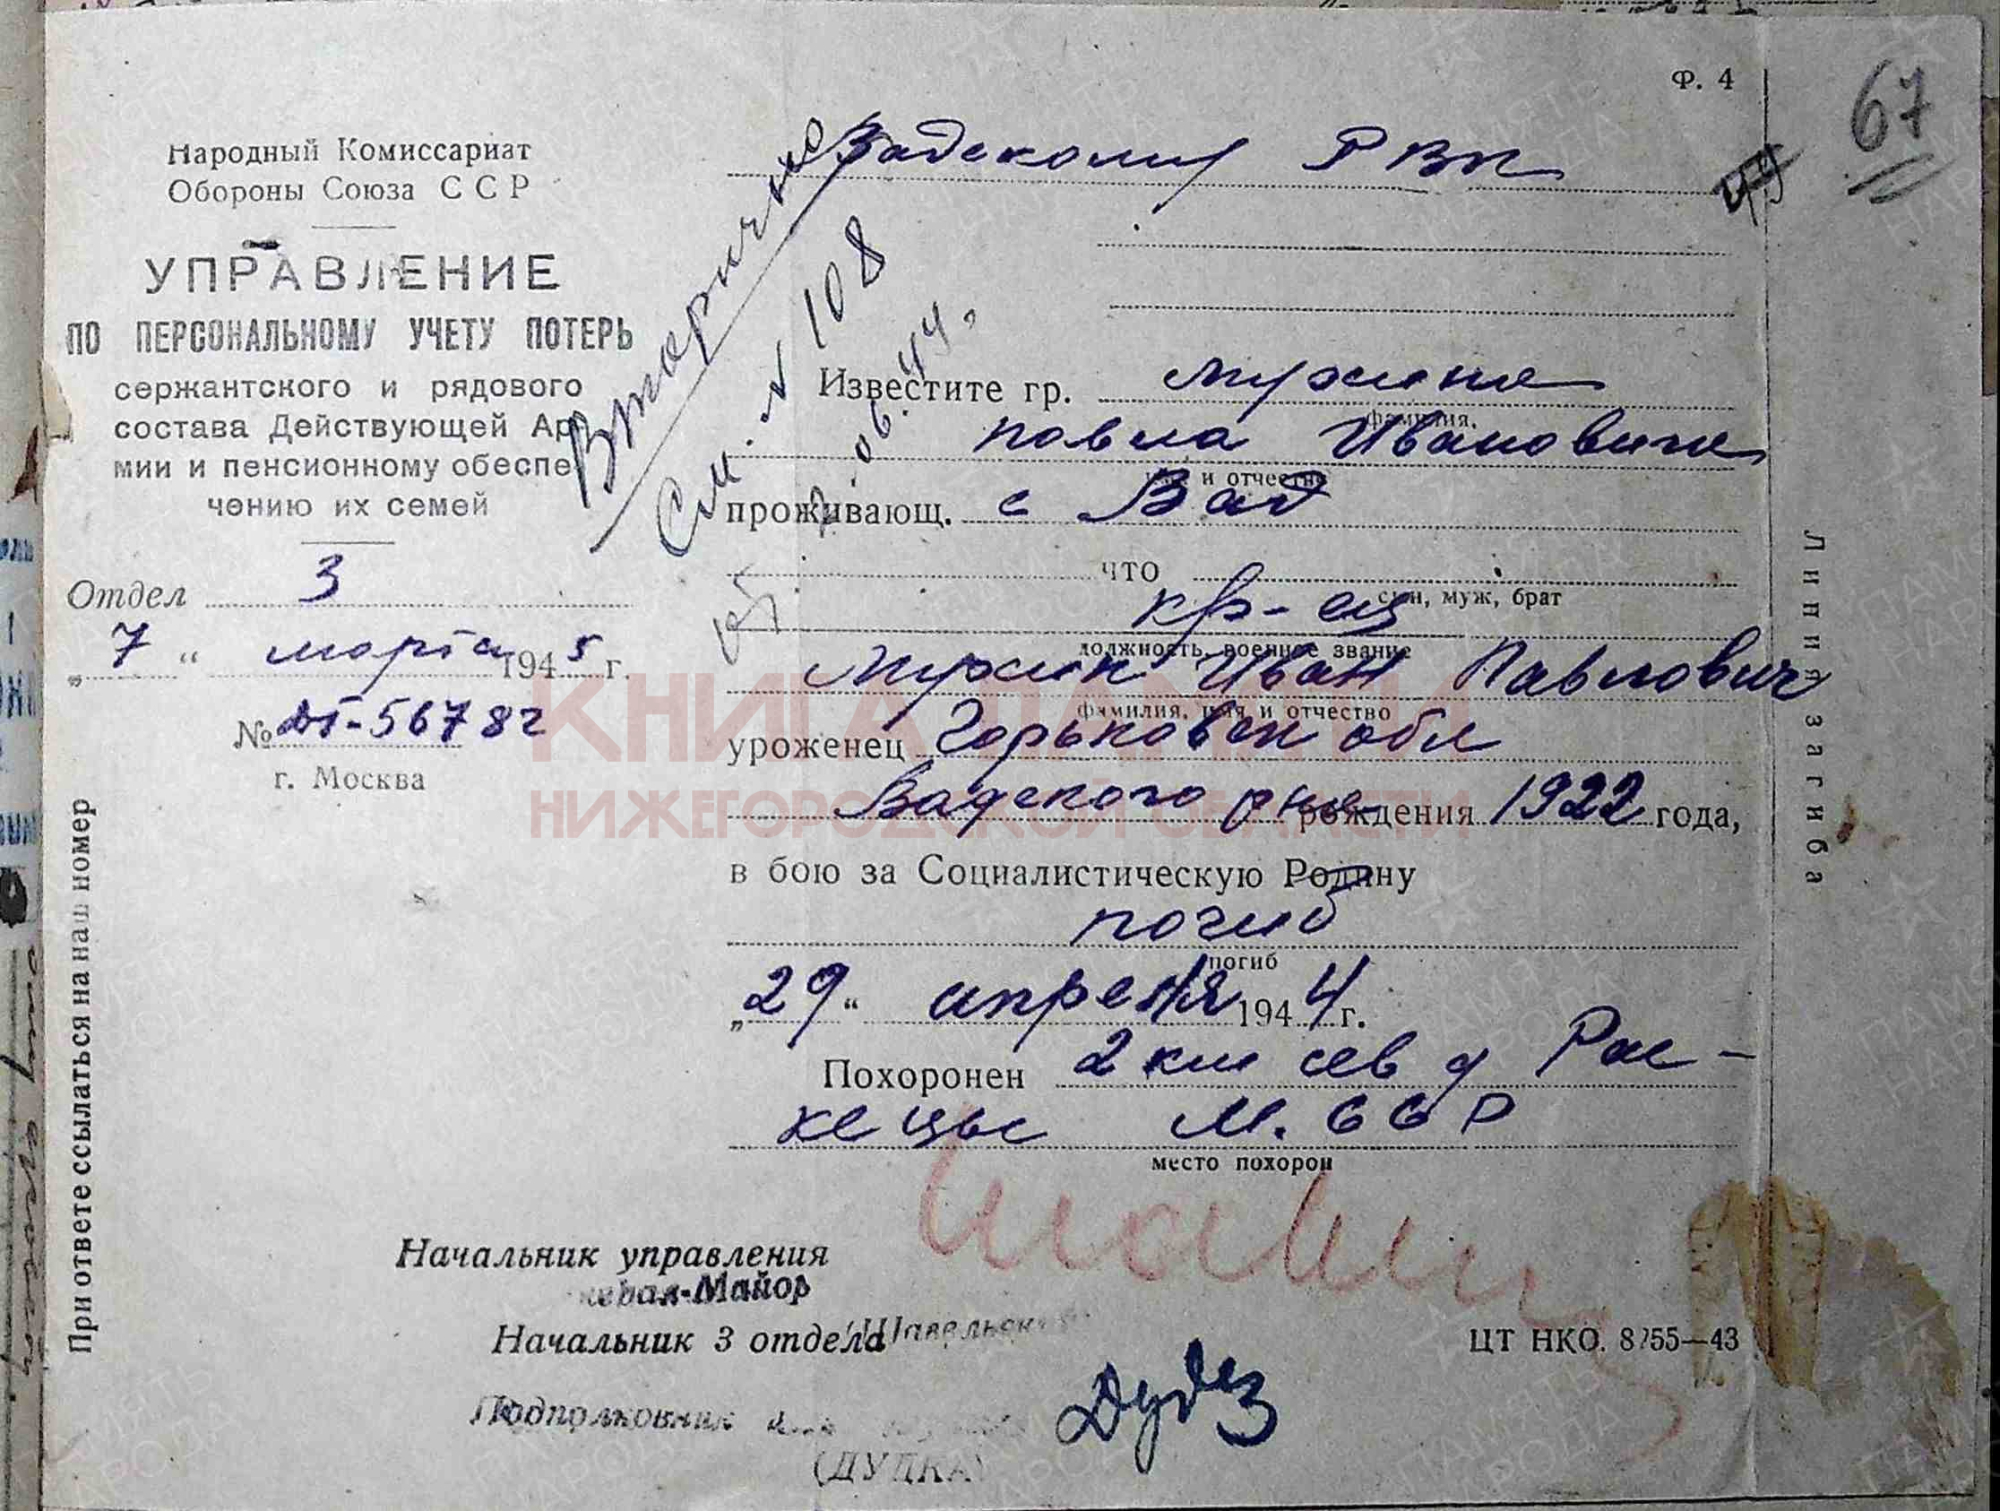 Ф. 4
67
49
Народный Комиссариат
Обороны Союза ССР
УПРАВЛЕНИЕ
ПО ПЕРСОНАЛЬНОМУ УЧЕТУ ПОТЕРЬ
сержантского и рядового
состава Действующей Ар
мии и пенсионному обеспе
чению их семей
Отдел 3
„7“ марта 1945 г.
№ 56782
г. Москва
При ответе ссылаться на наш номер
Вторично
См. № 108
44.
Вадскому РВК
Известите гр. Мужина
фамилия,
Павла Ивановича
и отчество
проживающ. с Вад
что
сын, муж, брат
кр-ец
должность, военное звание
Мужин Иван Павлович
фамилия, имя и отчество
уроженец Горьковск обл
Вадского р-на рождения 1922 года,
в бою за Социалистическую Родину
погиб
погиб
„29“ апреля 1944 г.
Похоронен 2 км сев д Рас-
кецы М.ССР
место похорон
Начальник управления
Майор
Начальник 3 отдела
Подполковник
(ДУДКА)
ЦТ НКО. 8255—43
Линия загиба
КНИГА ПАМЯТИ
НИЖЕГОРОДСКОЙ ОБЛАСТИ
ПАМЯТЬ НАРОДА